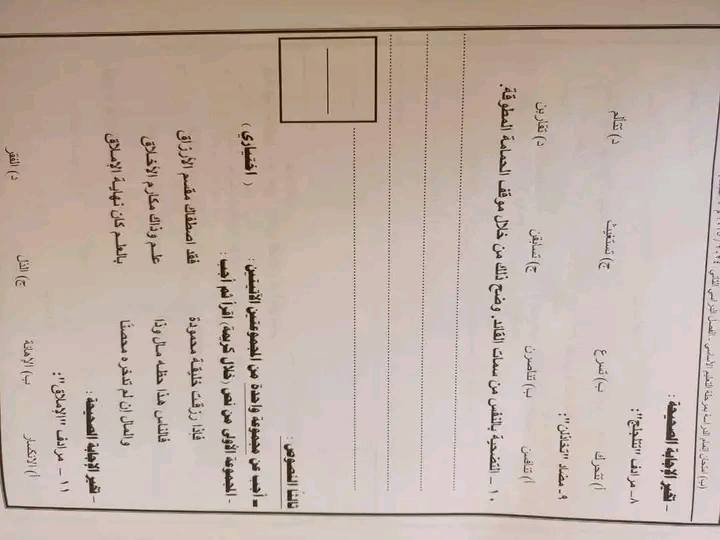 امتحان إتمام الدراسة بمرحلة التعليم الأساسي - الفصل الدراسي الثاني
- تخير الإجابة الصحيحة :
٨- مرادف "تتلجلج":
أ) تتحرك ب) تسرع ج) تستغيث د) تتألم
٩- مضاد "تخاذلن":
أ) تنافسن ب) تناصرن ج) تسابقن د) تقاربن
١٠ - التضحية بالنفس من سمات القائد. وضح ذلك من خلال موقف الحمامة المطوقة.
ثالثا النصوص :
= أجب عن مجموعة واحدة من المجموعتين الآتيتين : ( اختياري )
- المجموعة الأولى من نص (خلال كريمة) اقرأ ثم أجب :
فإذا رزقت خليقة محمودة فقد اصطفاك مقسم الأرزاق
فالناس هذا حظه مال وذا علم وذاك مكارم الأخلاق
والمال إن لم تدخره محصنا بالعلم كان نهاية الإملاق
- تخير الإجابة الصحيحة :
١١ - مرادف "الإملاق":
أ) الانكسار ب) الإهانة ج) الذل د) الفقر